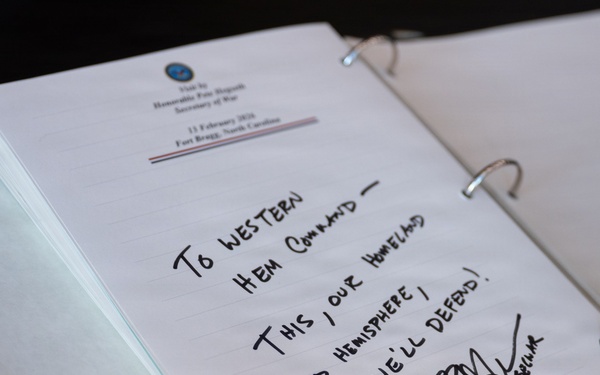 Visit by
Honorable Pete Hegseth
Secretary of War
13 February 2026
Fort Bragg, North Carolina
TO WESTERN
HEM COMMAND —
THIS, OUR HOMELAND
HEMISPHERE,
WE'LL DEFEND!
SECWAR